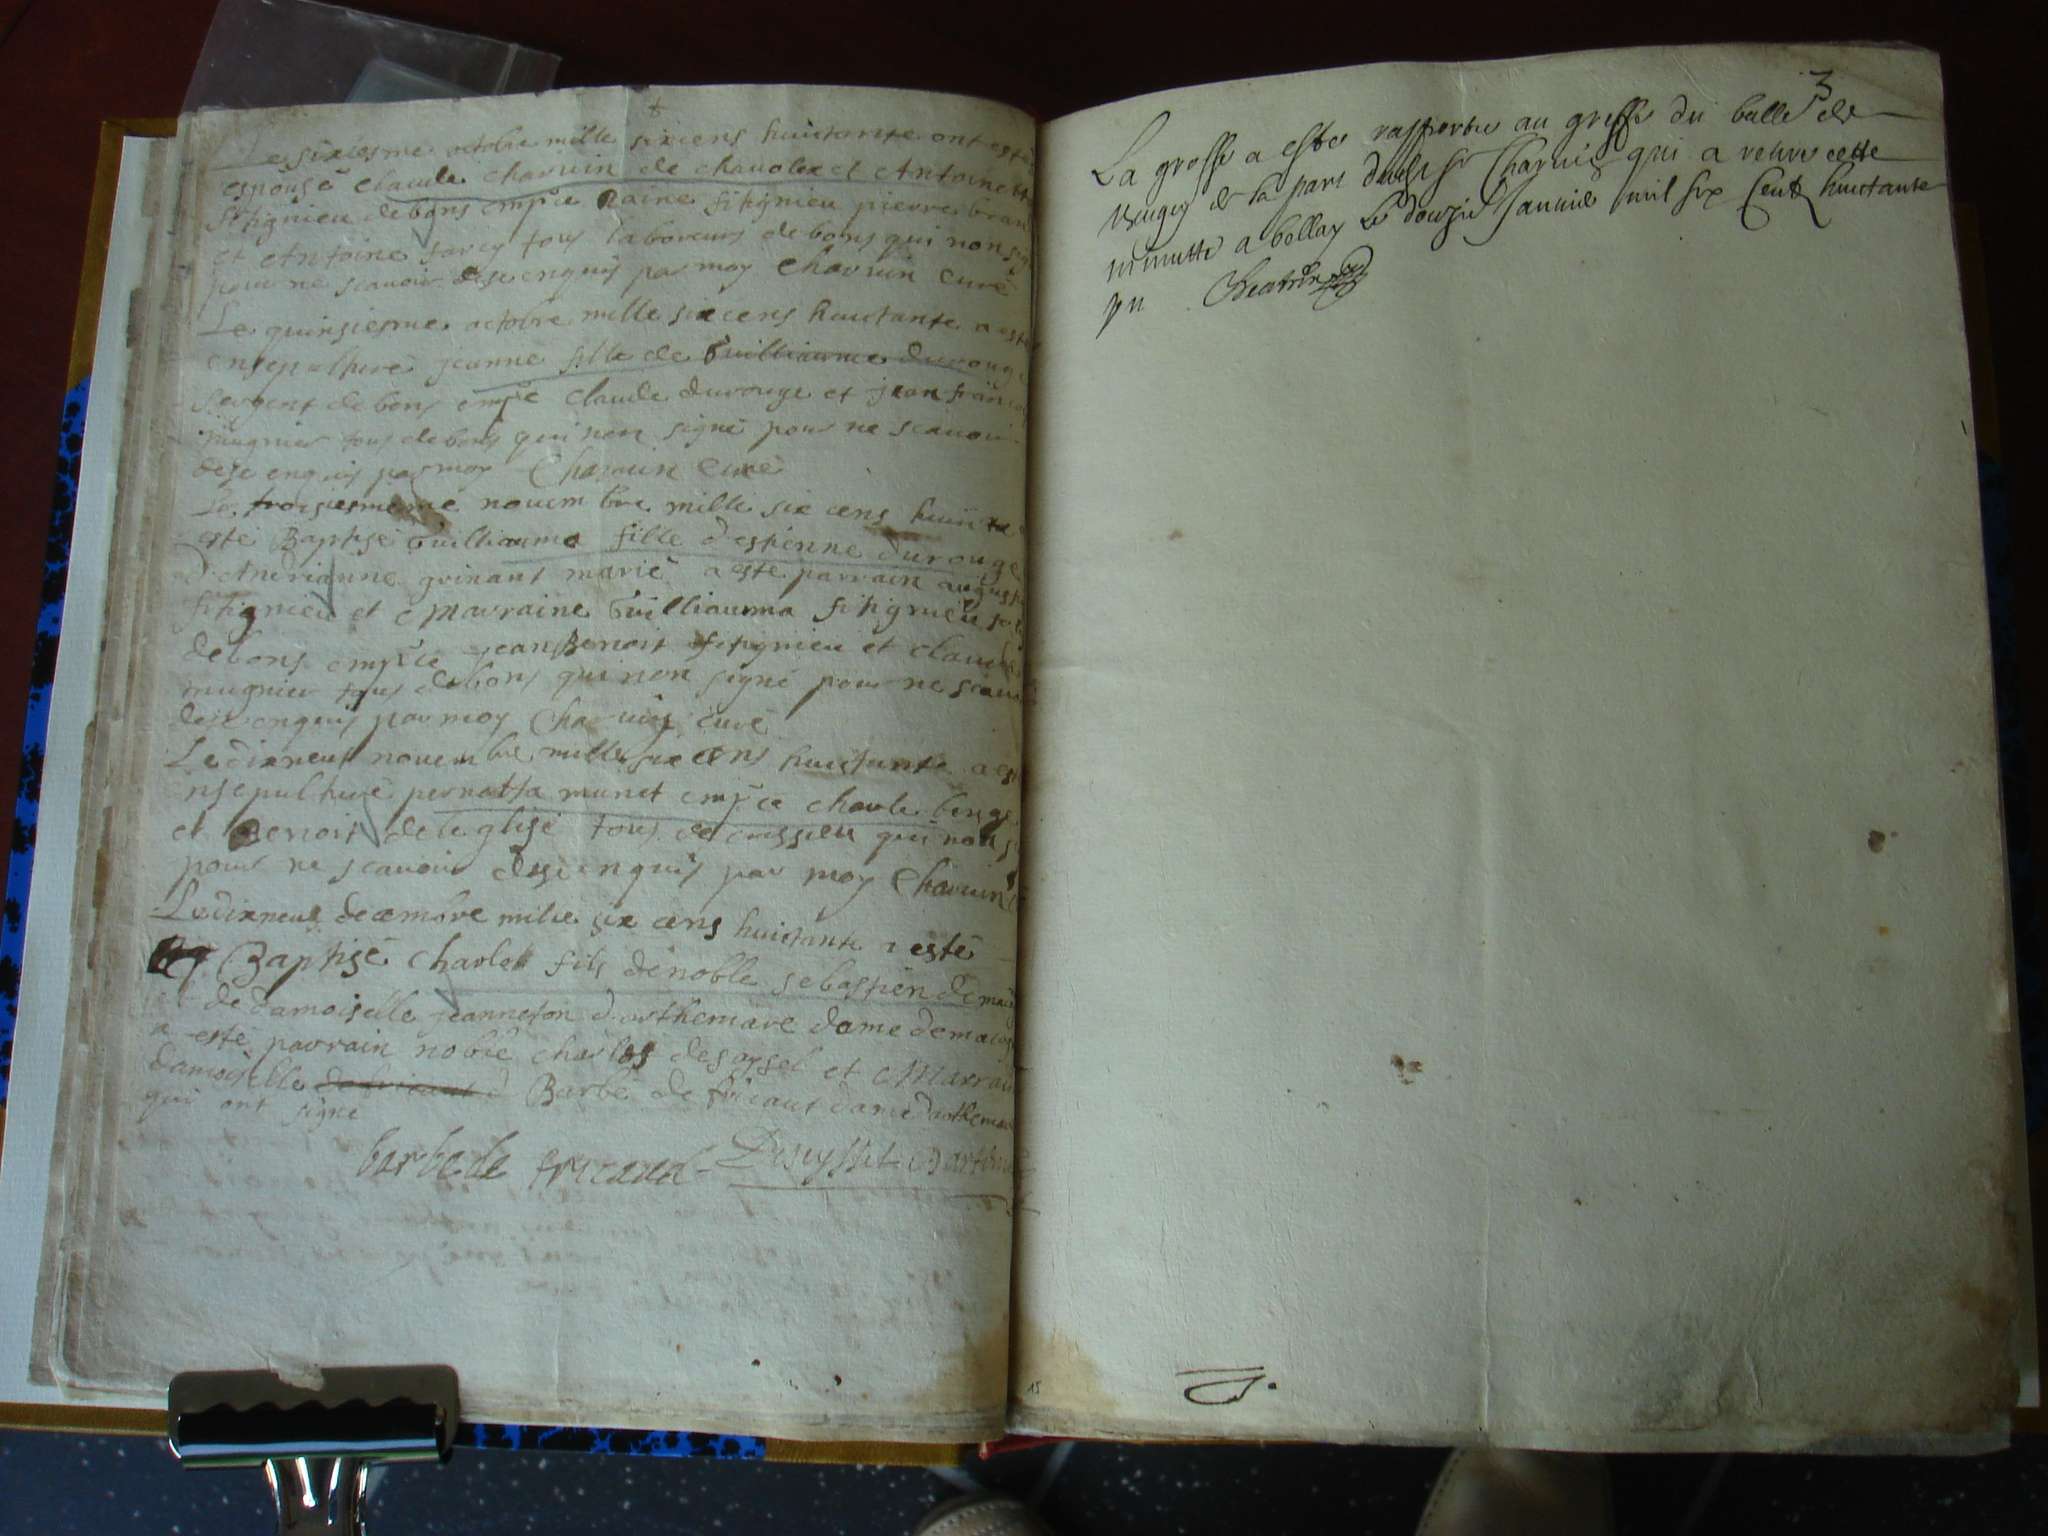 Le sixiesme octobre mille sixcens huictante ont esté
espousé claude charuin de chauolex et Antoinette
fitignieu de bons empñce raine fitignieu pierre
et Antoine tous laboreurs de bons qui non
pour ne scauoir de ce enquis par moy Charuin curé
Le quinsiesme octobre mille sixcens huictante a esté
ensepulturé jeanne fille de Guilliaume durouge
sergent de bons empñce Claude durouge et jean francois
mugnier tous de bons qui non signé pour ne scauoir
de ce enquis par moy Charuin Curé
Le troisiesme nouembre mille six cens
esté Baptisé Guilliauma fille d'estienne durouge
d'Andrianne grinant mariè a esté parrain augustin
fitignieu et Marraine Guilliauma fitignieu
de bons empñce jean Benoit fitignieu et claude
mugnier tous de bons qui non signé pour ne scauoir
de ce enquis par moy Charuin curé
Le dixneuf nouembre mille six cens huictante a esté
ensepulturé pernatta munet empñce charle
et Benoit de leglise tous de cuissieu qui non
pour ne scauoir de ce enquis par moy Charuin
Le dixneuf decembre mille six cens huictante a esté
Baptisé charle fils de noble sebastien de
et de damoiselle jeanneton d'arthemare dame de
a esté parrain noble charles deseyssel et Marraine
damoiselle de fricaut d Barbe de fricaut dame darthemare
qui ont signé
barbe de fricaud Deseyssel Dartemare
3
La grosse a esté rapportée au greffe du balle de
Beugey de la part dudit sr Charuin qui a retiré cette
minutte a bellay le douzie Januier mil six Cent huictante
un
15